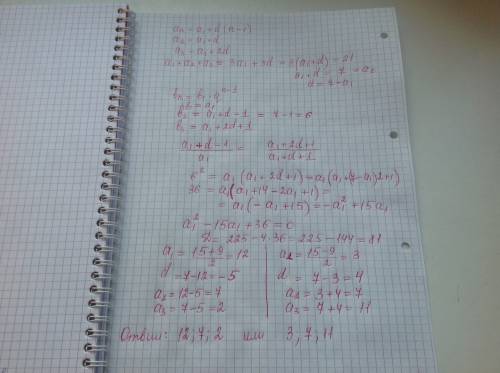 aₙ = a₁ + d(n-1)
a₂ = a₁ + d
a₃ = a₁ + 2d
a₁ + a₂ + a₃ = 3a₁ + 3d = 3(a₁ + d) = 21
a₁ + d = 7 = a₂
d = 7 - a₁
bₙ = b₁ · qⁿ⁻¹
b₁ = a₁
b₂ = a₁ + d - 1 = 7 - 1 = 6
b₃ = a₁ + 2d + 1
(a₁ + d - 1)/a₁ = (a₁ + 2d + 1)/(a₁ + d + 1)
6² = a₁(a₁ + 2d + 1) = a₁(a₁ + (7 - a₁)2 + 1)
36 = a₁(a₁ + 14 - 2a₁ + 1) =
= a₁(-a₁ + 15) = -a₁² + 15a₁
a₁² - 15a₁ + 36 = 0
D = 225 - 4·36 = 225 - 144 = 81
a₁ = (15 + 9)/2 = 12 a₁ = (15 - 9)/2 = 3
d = 7 - 12 = -5 d = 7 - 3 = 4
a₂ = 12 - 5 = 7 a₂ = 3 + 4 = 7
a₃ = 7 - 5 = 2 a₃ = 7 + 4 = 11
Ответ: 12, 7, 2 или 3, 7, 11